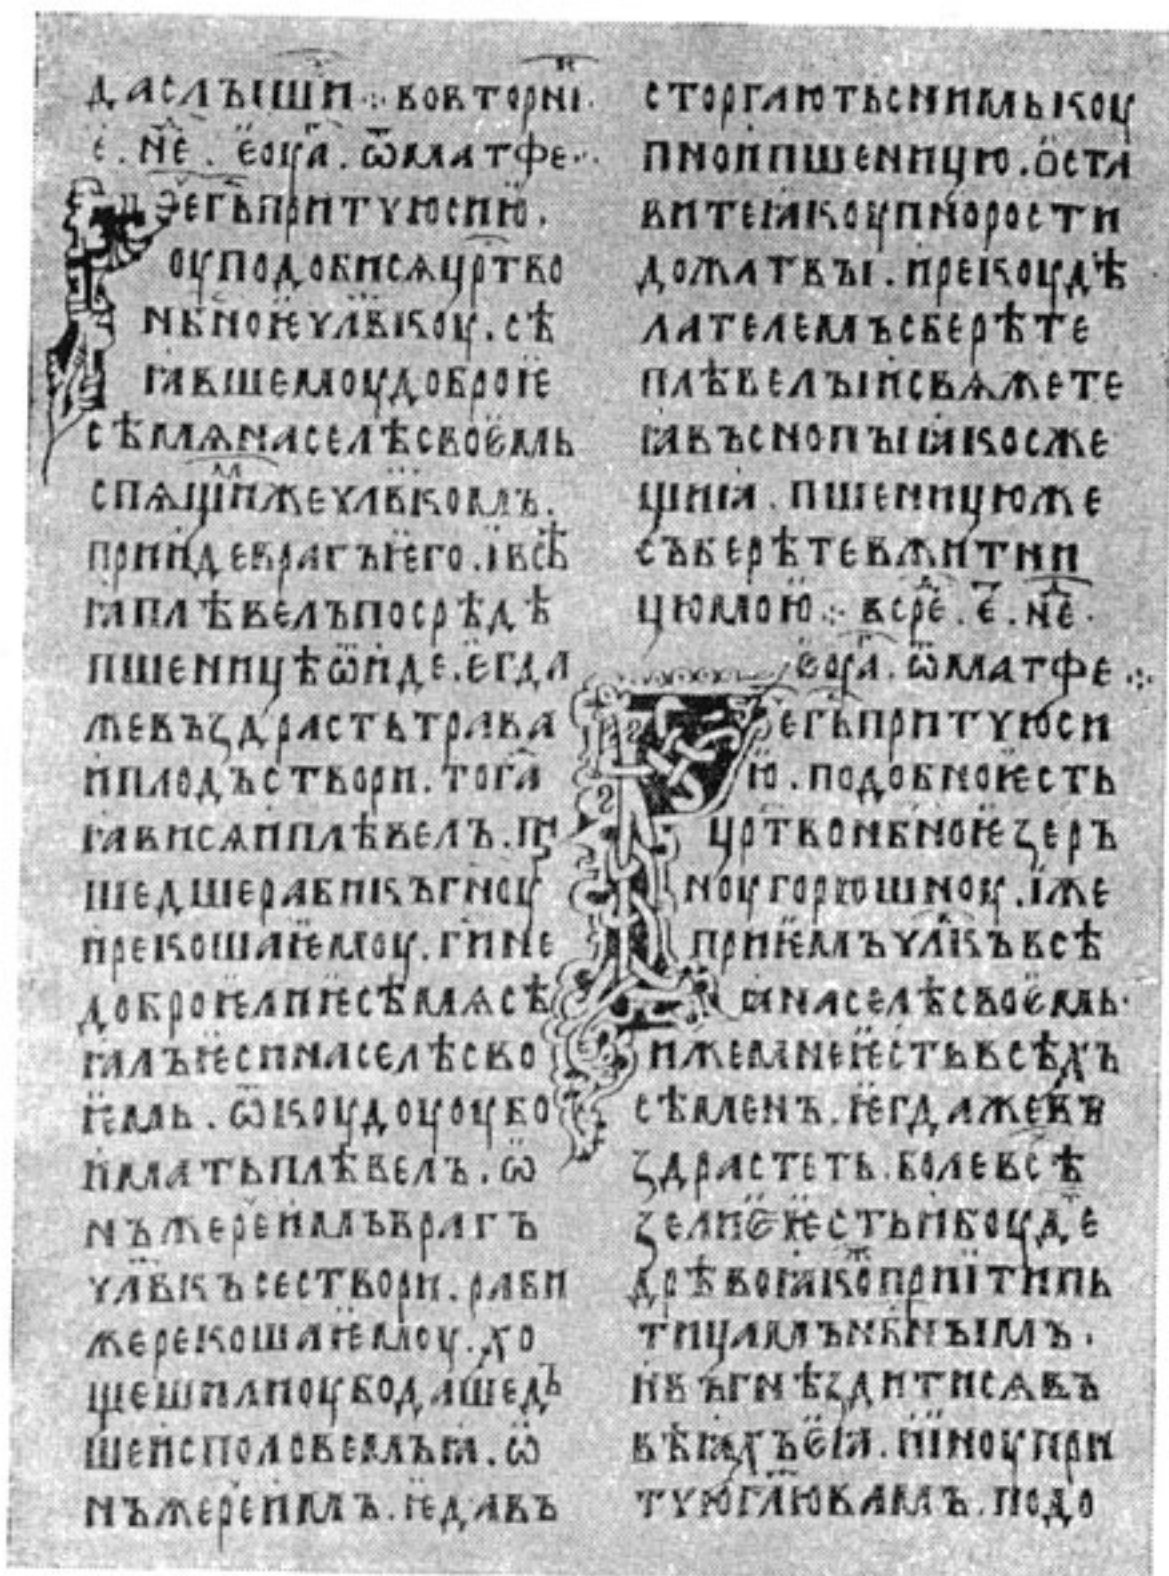 даслышить ⁘ вовторнⷦ҇і
е҃ . нⷣе . ѥоуⷢа . ѿ матфе ⁘
Рⷱ҇егь притчюсию .
оуподобисѧ цртво
нбноѥ члвкоу . сѣ
ꙗвшемоу доброѥ
сѣмѧ на селѣ своѥмь
спѧщимже члвкомъ .
приидеврагъѥго . ївсѣ
ꙗплѣвелъпосрѣдѣ
пшеницѣѿиде . ѥгда
жевъꙁдрастьтрава
иплодъствори . тогⷣа
ꙗвисѧиплѣвелъ . при
шедшерабикъгноу
рекошаѥмоу . гине
доброѥлиѥсѣмѧсѣ
ꙗлъѥсинаселѣсво
ѥмь . ѿкоудоуоубо
иматьплѣвелъ . ѿ
нъжереⷱ҇имъврагъ
члвкъсестворі . раби
жерекошаѥмоу . хо
щешилиоубодашедъ
шеисполовемъꙗ . ѿ
нъжереⷱ҇имъ . ѥдавъ
сторгаютьснимькоу
пноипшеницю . оста
витеꙗкоупнорости
дожатвы . ирекоудѣ
лателемъсберѣте
плѣвелыисвѧжете
ꙗвъснопыꙗкосже
щиꙗ . пшеницюже
съберѣтевжитни
цюмою ⁘ всреⷣ . е҃ . нⷣе .
ѥоуⷢа . ѿматфе ⁘
Рⷱ҇егьпритчюси
ю . подобноѥсть
цртвонбноѥꙁерь
ноугорюшноу . їже
приѥмъчлвкъвсѣ
ꙗнаселѣсвоѥмь .
ижемнеѥстьвсѣхъ
сѣменъ . ѥгдажевъ
ꙁдрастеть . болевсѣⷯ
ꙁелиѥѥстьибоудеⷮ
дрѣвоꙗкоⷤприїтипь
тицамънбнымъ .
ивъгнѣꙁдитисѧвъ
вѣꙗхъѥꙗ . иїноупри
тчюглювамъ . подо